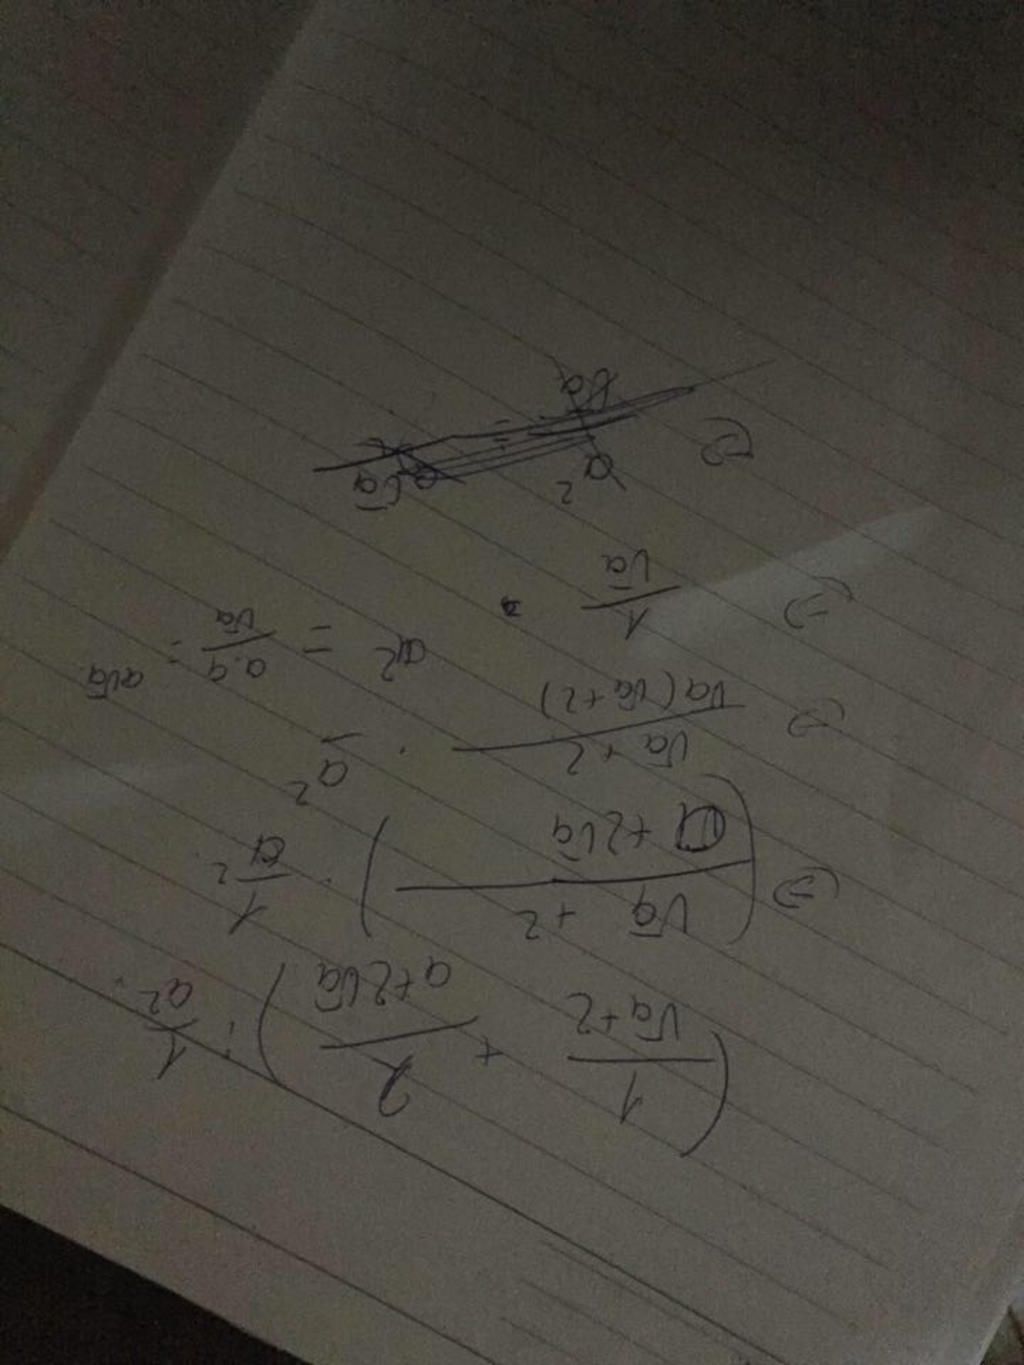 (1/(√a+2) + 2/(a+2√a)) : 1/a².
⇒ ((√a +2)/(a +2√a)) . 1/a².
⇒ (√a +2)/(√a(√a+2)) . a²
⇒ 1/√a . a² = a.a/√a = a√a.